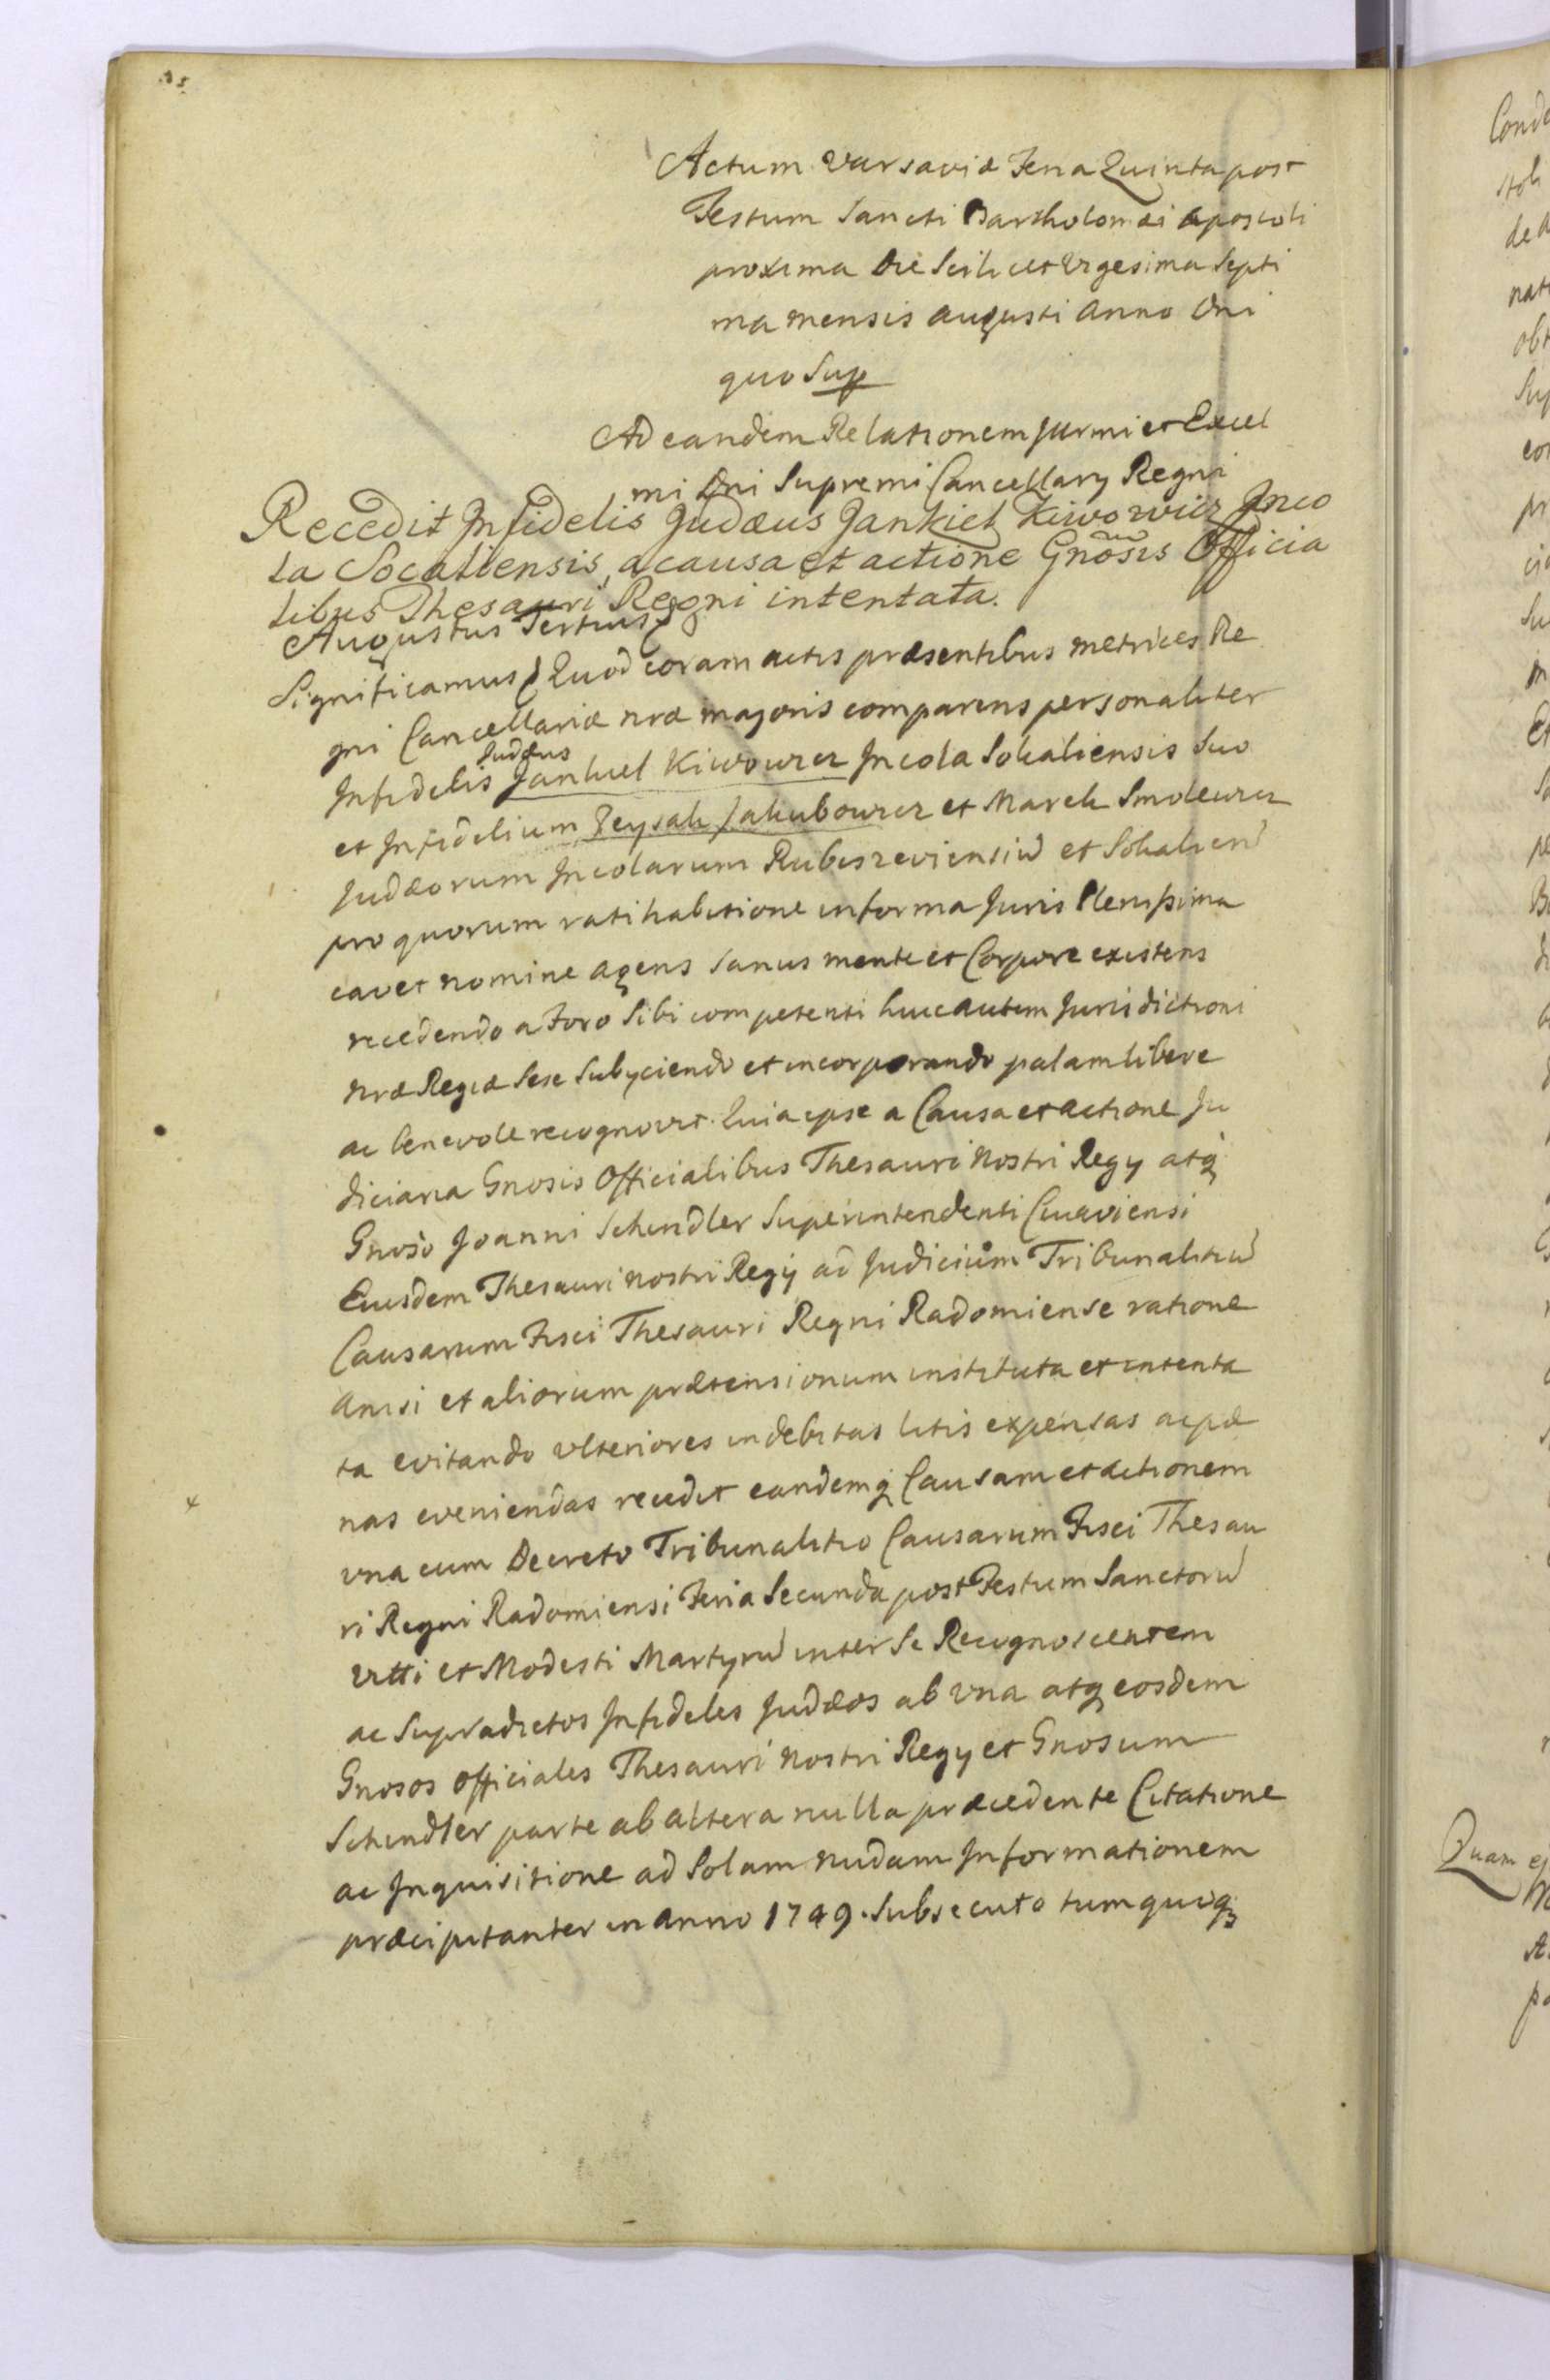 Actum Varsaviæ Feria Quinta post
Festum Sancti Bartholomæi Apostoli
proxima Die Scilicet Vigesima Septi
ma mensis Augusti Anno Dni
quo Sup
Ad eandem Relationem Jllrmi et Excel
mi Dni Supremi Cancellary Regni
Recedit Jnfidelis Judæus Jankiel Kiwowicz Jnco
la Socaliensis, a causa et actione Gnosis Officia
libus Thesauri Regni intentata.
Augustus Tertius
Significamus Quod coram actis præsentibus metrices Re
gni Cancellariæ nræ majoris comparens personaliter
Judæus
Jnfidelis Jankiel Kiwowicz Jncola Sokaliensis suo
et Jnfidelium Peysak Jakubowicz et Marek Smolewicz
Judæorum Jncolarum Rubieszeviensiu et Sokalien
pro quorum ratihabitione in forma Juris Plenissima
cavet nomine agens sanus mente et Corpore existens
recedendo a Foro Sibi competenti huic autem Jurisdictioni
Nræ Regiæ Sese Subyciendo et incorporando palam libere
ac benevole recognovit. Quia ipse a Causa et actione Ju
diciaria Gnosis Officialibus Thesauri Nostri Regy atq
Gnoso Joanni Schindler Superintendenti Cuiaviensi
Eiusdem Thesauri nostri Regy ad Judicium Tribunalitiu
Causarum Fisci Thesauri Regni Radomiense ratione
Anisi et aliorum prætensionum instituta et intenta
ta evitando ulteriores indebitas litis expensas ac pæ
nas eveniendas recedit eandemq Causam et actionem
una cum Decreto Tribunalitio Causarum Fisci Thesau
ri Regni Radomiensi Feria Secunda post Festum Sanctoru
Vitti et Modesti Martyru inter Se Recognoscentem
ac Supradictos Jnfideles Judæos ab una atq eosdem
Gnosos Officiales Thesauri Nostri Regy et Gnosum
Schindler parte ab altera nulla præcedente Citatione
ac Jnquisitione ad Solam nudam Jnformationem
præcipitanter in Anno 1749. Subsecuto tum quoq